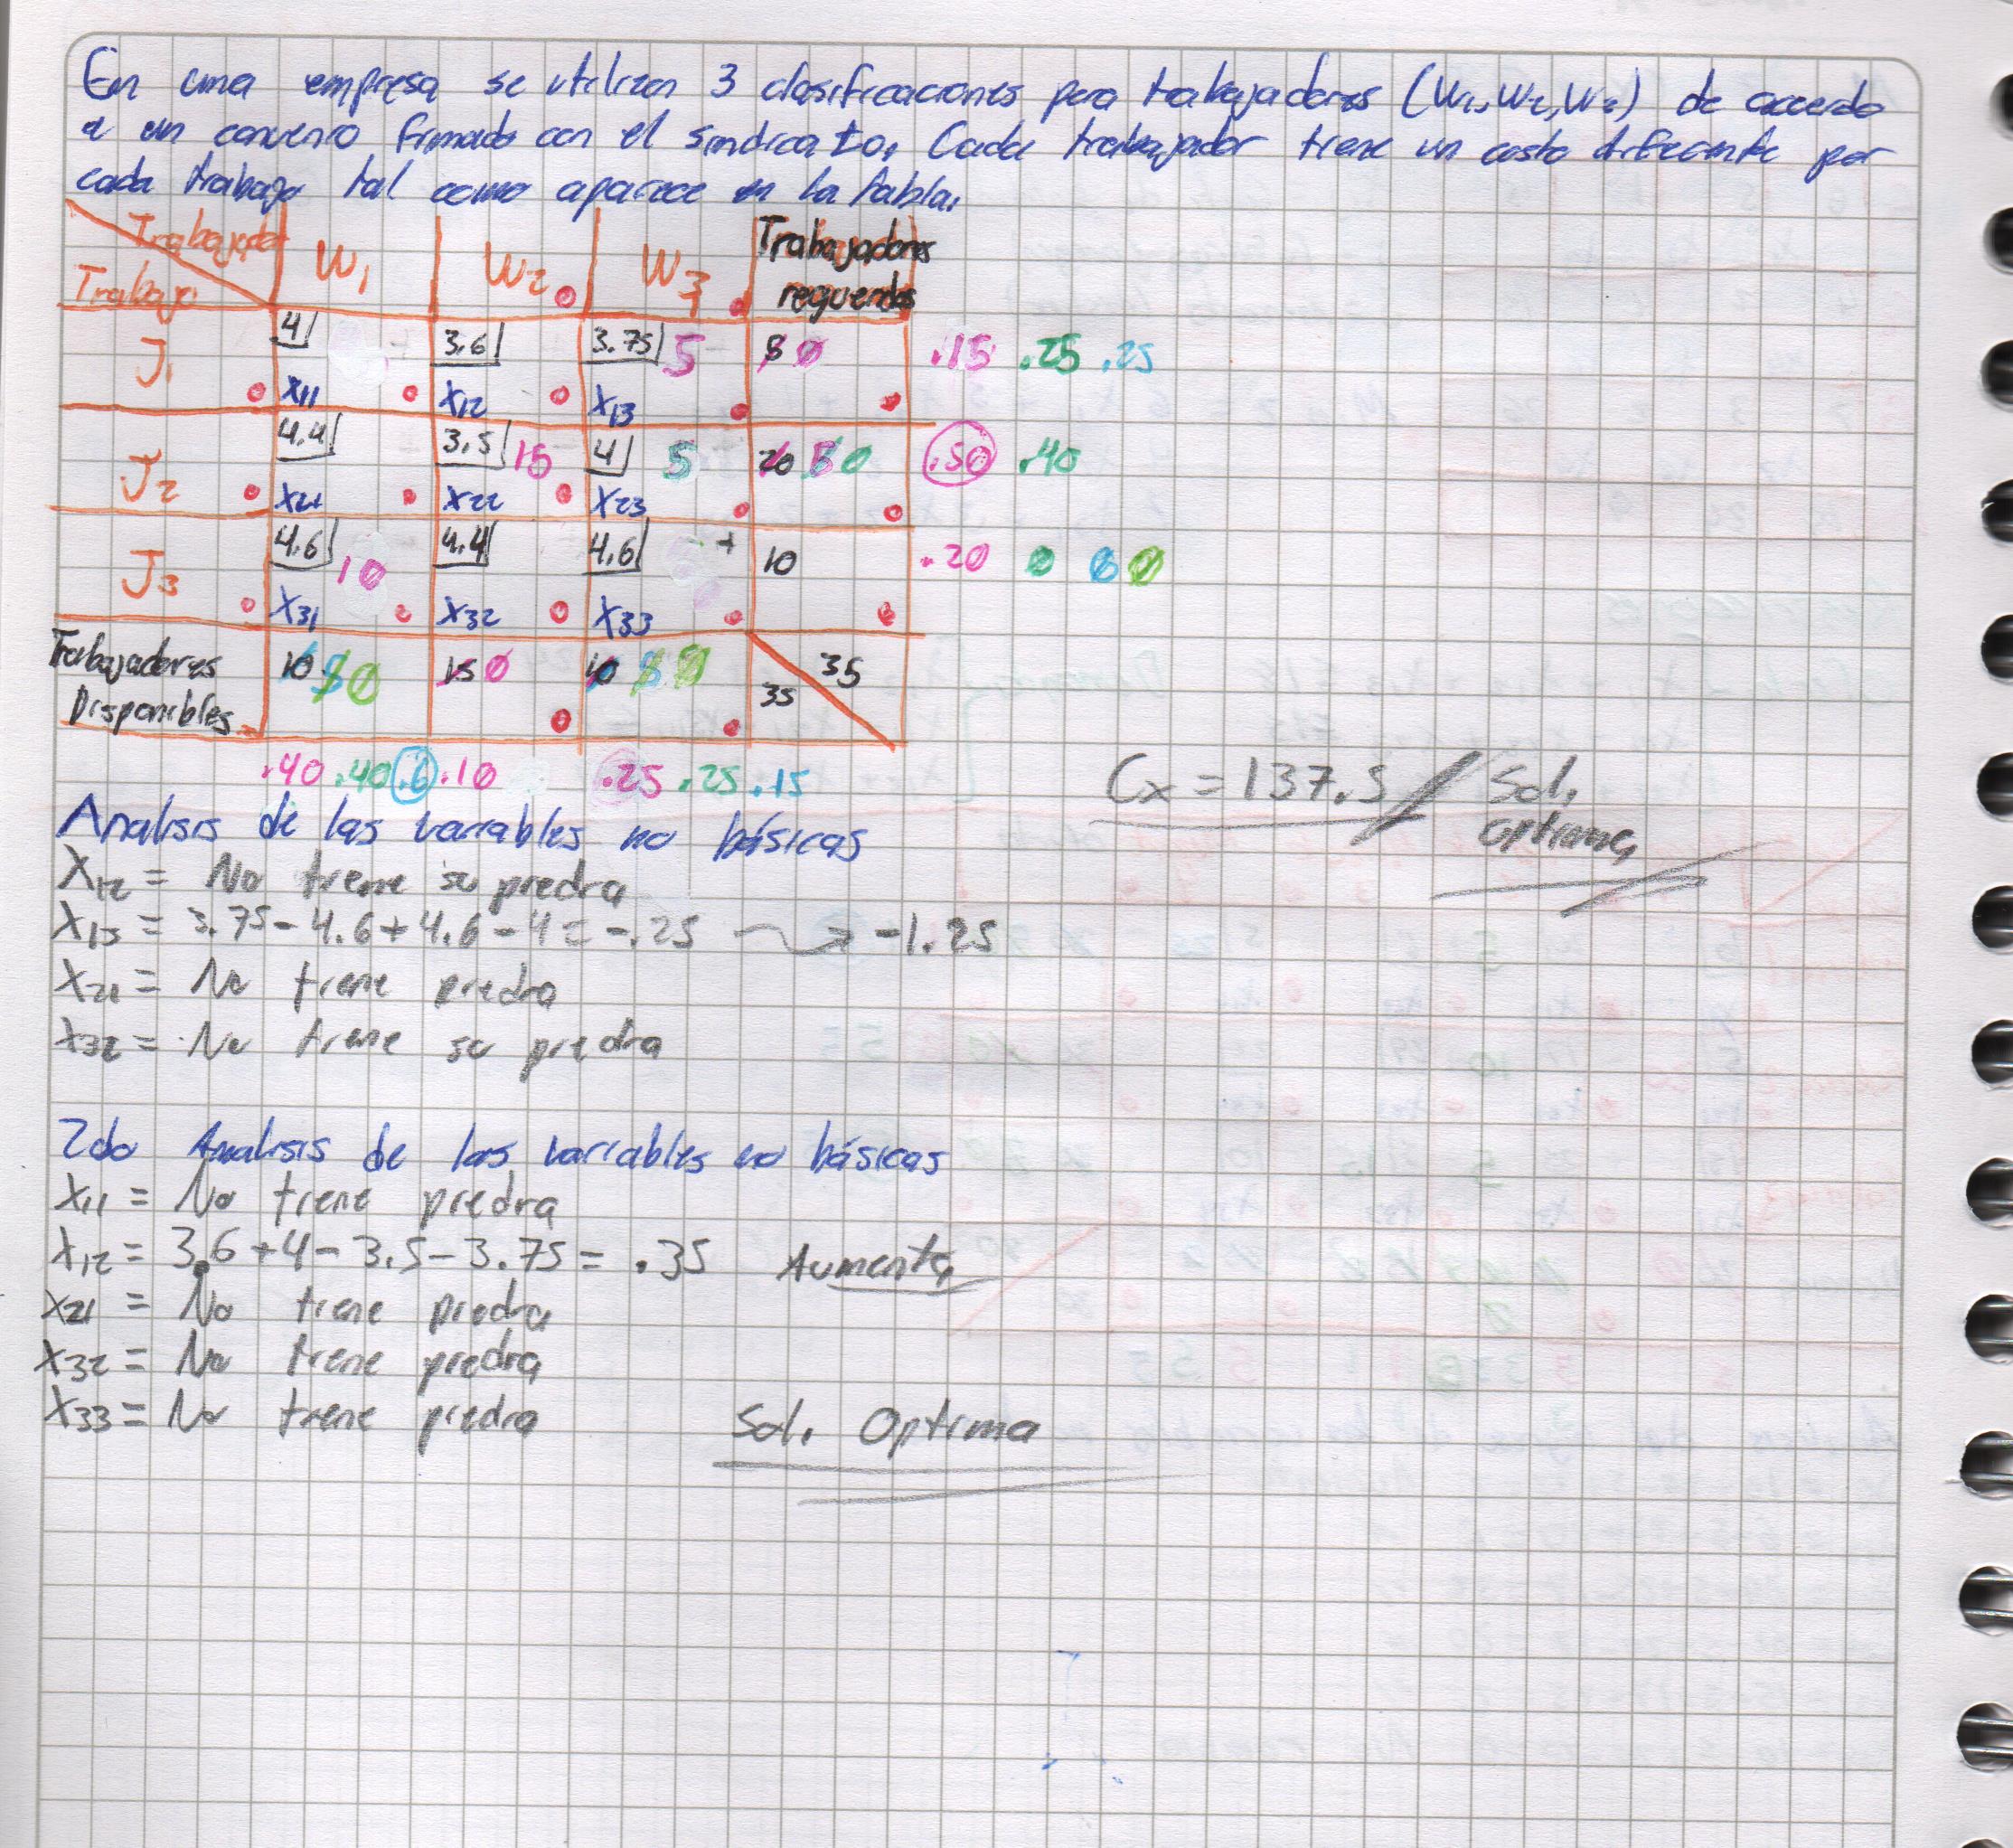 En una empresa se utilizan 3 clasificaciones para trabajadores (W1, W2, W3) de acuerdo
a un convenio firmado con el sindicato. Cada trabajador tiene un costo diferente por
cada trabajo tal como aparece en la tabla.
Trabajador W1 W2 W3 Trabajadores
Trabajo requeridos
J1 4 3.6 3.75 5 5 0 .15 .25 .25
X11 X12 X13
J2 4.4 3.5 15 4 5 20 5 0 .50 .40
X21 X22 X23
J3 4.6 10 4.4 4.6 + 10 .20 0 0 0
X31 X32 X33
Trabajadores 10 5 0 15 0 10 5 0 35 35
Disponibles
.40 .40 .6 .10 .25 .25 .15
Cx = 137.5 Sol.
optima
Analisis de las variables no básicas
X12 = No tiene su piedra
X13 = 3.75 - 4.6 + 4.6 - 4 = -.25 → -1.25
X21 = No tiene piedra
X32 = No tiene su piedra
2do Analisis de las variables no básicas
X11 = No tiene piedra
X12 = 3.6 + 4 - 3.5 - 3.75 = .35 Aumenta
X21 = No tiene piedra
X32 = No tiene piedra
X33 = No tiene piedra
Sol. Optima